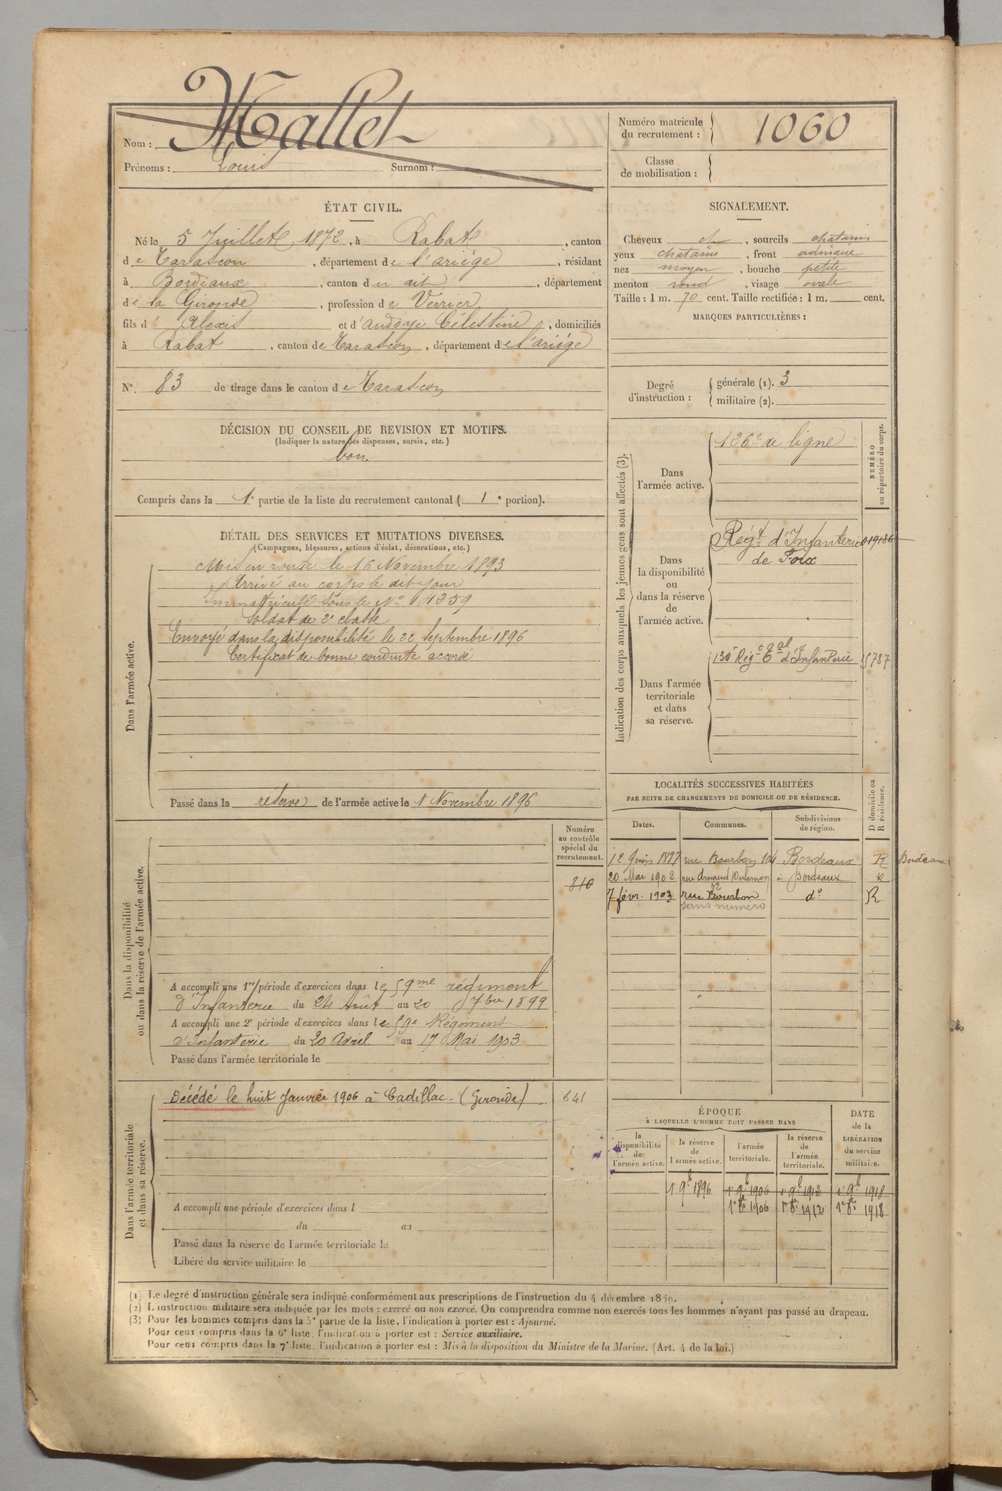 Nom : Mallet
Prénoms : Louis Surnom :
Numéro matricule du recrutement : 1060
Classe de mobilisation :
ÉTAT CIVIL.
Né le 5 Juillet 1872, à Rabat, canton
de Tarascon, département de l'ariège, résidant
à Bordeaux, canton du dit, département
de la Gironde, profession de Verrier
fils d' Alexis et d'audoye Célestine, domiciliés
à Rabat, canton de Tarascon, département de l'ariège
N° 83 de tirage dans le canton de Tarascon
DÉCISION DU CONSEIL DE REVISION ET MOTIFS.
(Indiquer la nature des dispenses, sursis, etc.)
bon
Compris dans la 1e partie de la liste du recrutement cantonal ( 1e portion).
DÉTAIL DES SERVICES ET MUTATIONS DIVERSES.
(Campagnes, blessures, actions d'éclat, décorations, etc.)
Dans l'armée active.
Mis en route le 16 Novembre 1893
Arrivé au corps le dit jour
Immatriculé sous le No 1359
Soldat de 2e classe
Envoyé dans la disponibilité le 22 Septembre 1896
Certificat de bonne conduite accordé
Passé dans la réserve de l'armée active le 1 Novembre 1896
Dans la disponibilité ou dans la réserve de l'armée active.
Numéro au contrôle spécial du recrutement.
810
A accompli une 1re période d'exercices dans le 59me régiment
d'Infanterie du 24 Août au 20 7bre 1899
A accompli une 2e période d'exercices dans le 59e Régiment
d'Infanterie du 20 Avril au 17 Mai 1903
Passé dans l'armée territoriale le
Dans l'armée territoriale et dans sa réserve.
Décédé le huit Janvier 1906 à Cadillac - (Gironde) 641
A accompli une période d'exercices dans l
du au
Passé dans la réserve de l'armée territoriale le
Libéré du service militaire le
SIGNALEMENT.
Cheveux et, sourcils chatains
yeux chatains, front ordinaire
nez moyen, bouche petite
menton rond, visage ovale
Taille : 1 m. 70 cent. Taille rectifiée : 1 m. cent.
MARQUES PARTICULIÈRES :
Degré d'instruction : générale (1). 3
militaire (2).
Indication des corps auxquels les jeunes gens sont affectés (3).
NUMÉRO au répertoire du corps.
Dans l'armée active. 126e de ligne
Dans la disponibilité ou dans la réserve de l'armée active.
Régt d'Infanterie
de Foix
Dans l'armée territoriale et dans sa réserve.
LOCALITÉS SUCCESSIVES HABITÉES
PAR SUITE DE CHANGEMENTS DE DOMICILE OU DE RÉSIDENCE.
Dates. Communes. Subdivisions de région. D domicile ou R résidence.
12 Juin 1897 rue Bourbon 104 Bordeaux R Bordeaux
20 Mai 1902 rue Arnaud à Bordeaux R
7 févr. 1903 rue Bourbon do R
sans numéro
ÉPOQUE
À LAQUELLE L'HOMME DOIT PASSER DANS
la disponibilité de l'armée active. la réserve de l'armée active. l'armée territoriale. la réserve de l'armée territoriale.
DATE de la LIBÉRATION du service militaire.
1 9b 1896 1e 9b 1906 1e 9b 1912 1e 9b 1918
1er 8bre 1906 1er 8bre 1912 1er 8bre 1918
(1) Le degré d'instruction générale sera indiqué conformément aux prescriptions de l'instruction du 4 décembre
(2) L'instruction militaire sera indiquée par les mots : exercé ou non exercé. On comprendra comme non exercés tous les hommes n'ayant pas passé au drapeau.
(3) Pour les hommes compris dans la 5e partie de la liste, l'indication à porter est : Ajourné.
Pour ceux compris dans la 6e liste, l'indication à porter est : Service auxiliaire.
Pour ceux compris dans la 7e liste, l'indication à porter est : Mis à la disposition du Ministre de la Marine. (Art. 4 de la loi.)